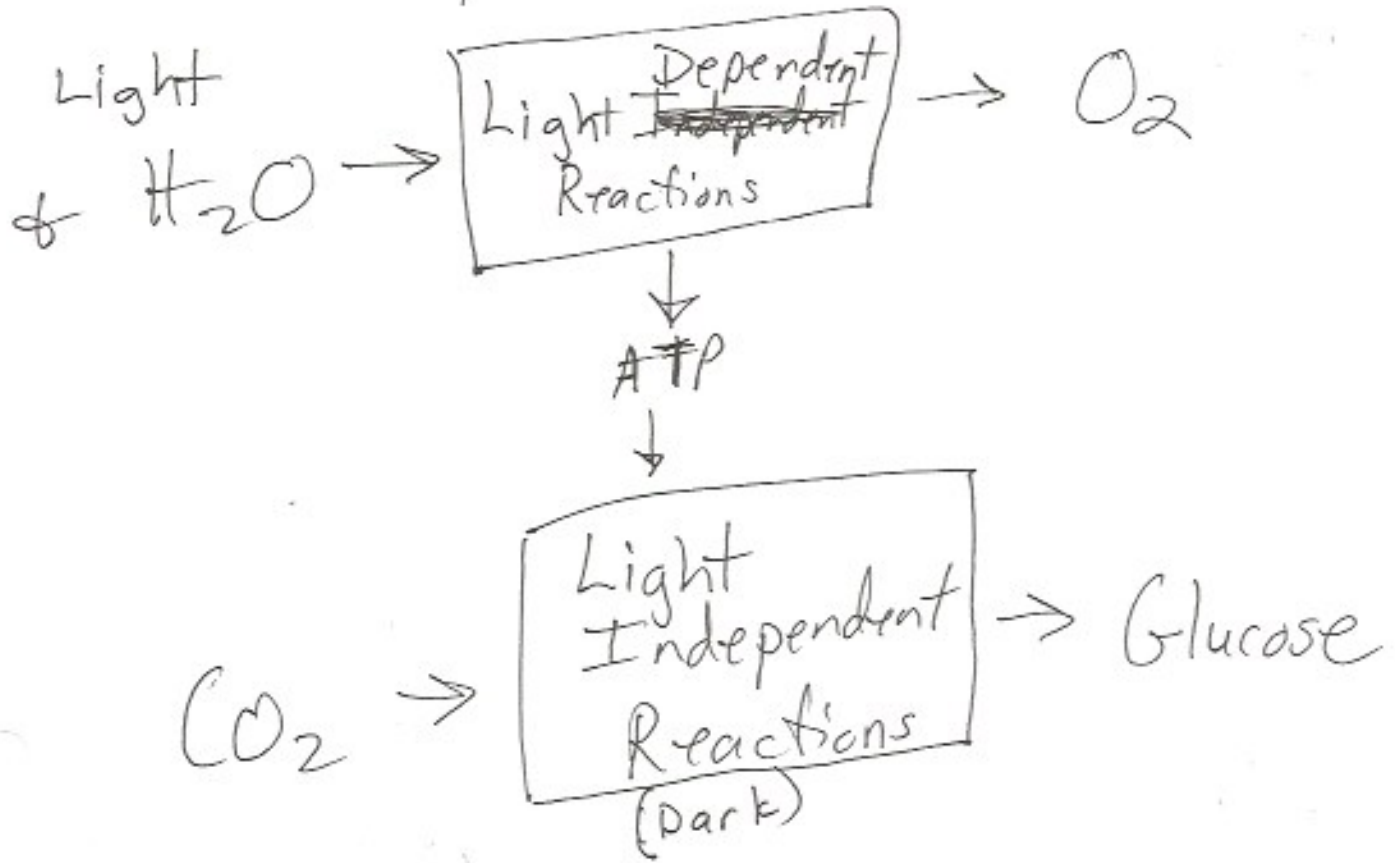 Light
& H₂O
Dependent
Light Independent
Reactions
O₂
ATP
Light
Independent
Reactions
(Dark)
CO₂
Glucose